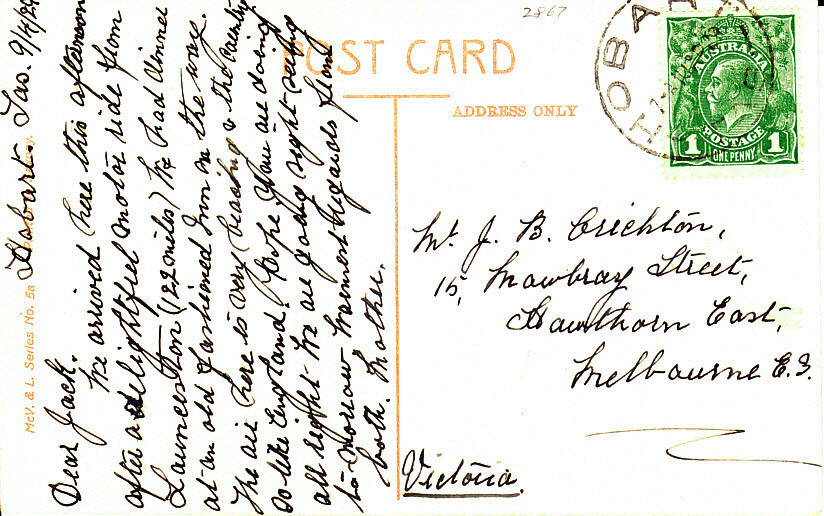 2867
POST CARD
ADDRESS ONLY
HOBA
AUSTRALIA
POSTAGE
1 ONE PENNY 1
McV. & L. Series No. 5a
Hobart Tas. 9/4/24
Dear Jack.
We arrived here this afternoon
after a delightful motor ride from
Launceston (122 miles) We had dinner
at an old fashioned Inn on the way.
The air here is very bracing & the country
so like England. Hope you are doing
all right We are going sight seeing
to-morrow Warmest Regards from
both. Mother.
Mr. J. B. Crichton,
15, Mowbray Street,
Hawthorn East,
Melbourne E.3.
Victoria.